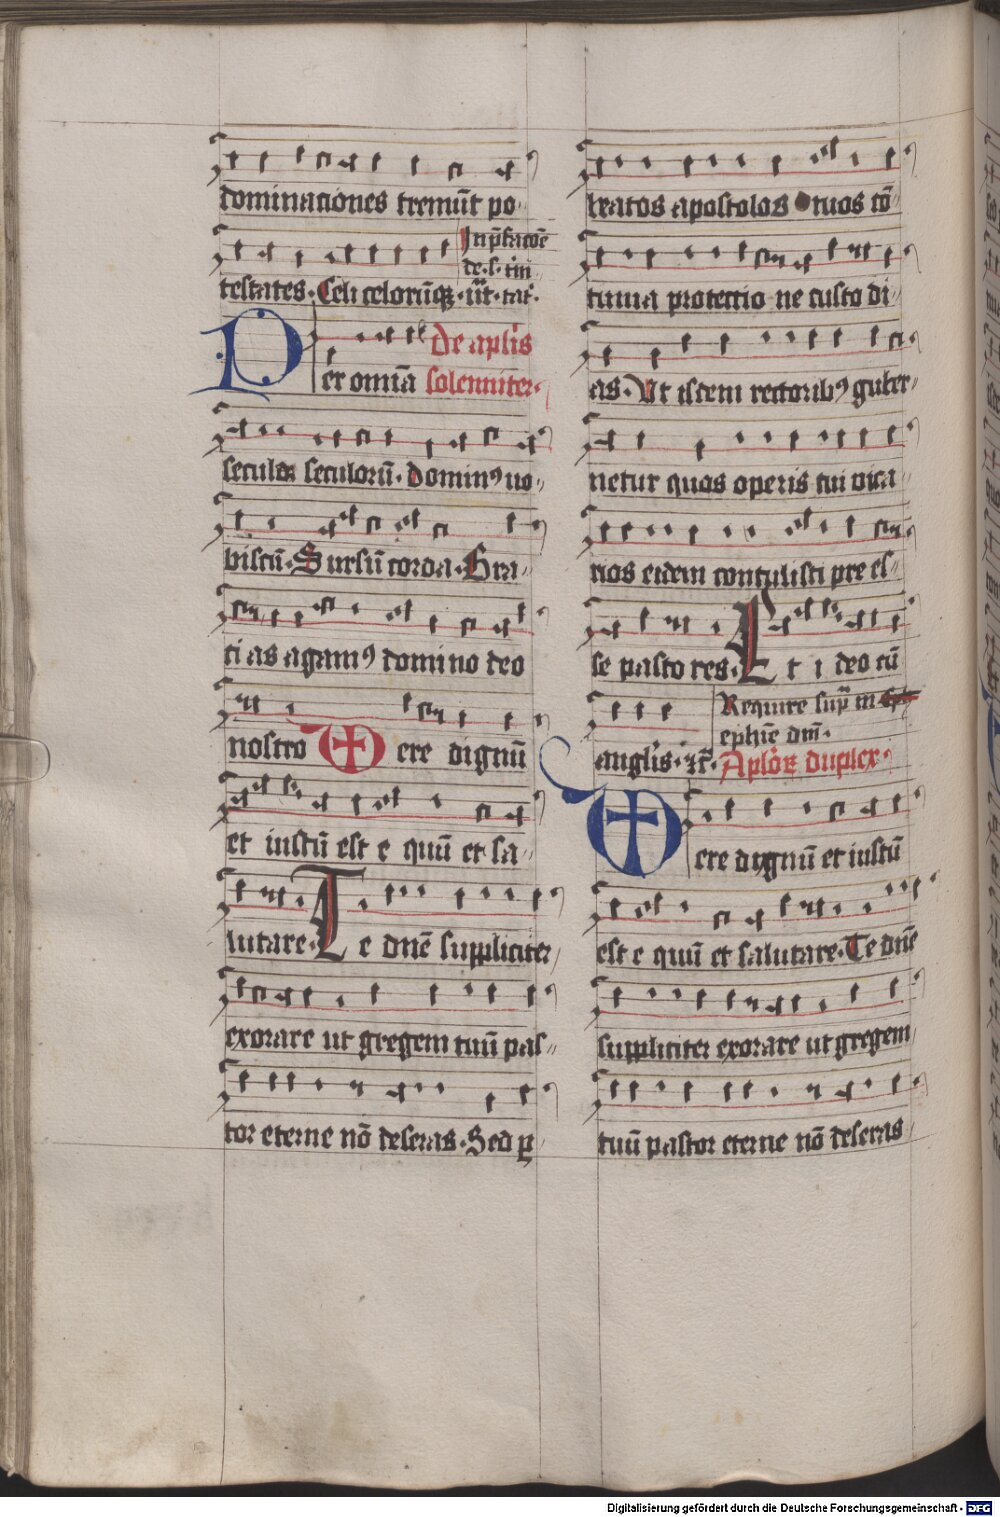 dominaciones tremūt po-
testates. Celi celorūqȝ. ut.
In p̄facōe
de. s.
De aplis
Per omīa solenniter.
seculoꝝ seculorū. Dominꝰ uo-
biscū. Sursū corda. Gra-
ti as agamꝰ domino deo
nostro Vere dignū
et iustū est e quū et sa-
lutare. Te dn̄e suppliciter
exorare ut gregem tuū pas-
tor eterne nō deseras. Sed ꝑ
beatos apostolos tuos cō-
tinua protectio ne custo di-
as. Ut isdem rectoribꝰ guber-
netur quos operis tui vica-
rios eidem contulisti pre es-
se pasto res. Et i deo cū
Require sup̄ in
ephīe dm̄.
anglis. Aploꝝ duplex.
Vere dignū et iustū
est e quū et salutare. Te dn̄e
suppliciter exorare ut gregem
tuū pastor eterne nō deseras
Digitalisierung gefördert durch die Deutsche Forschungsgemeinschaft - DFG